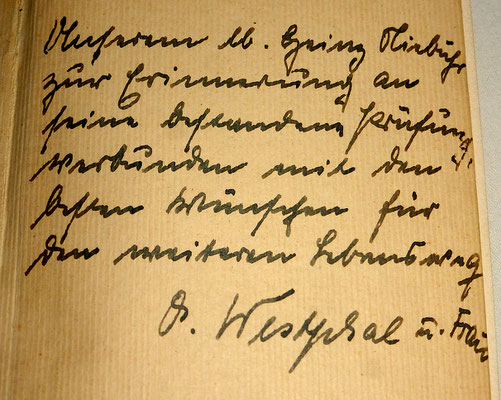 Unserem lb. Heinz Niebuhr
zur Erinnerung an
seine bestandene Prüfung,
verbunden mit den
besten Wünschen für
den weiteren Lebensweg
O. Westphal u. Frau